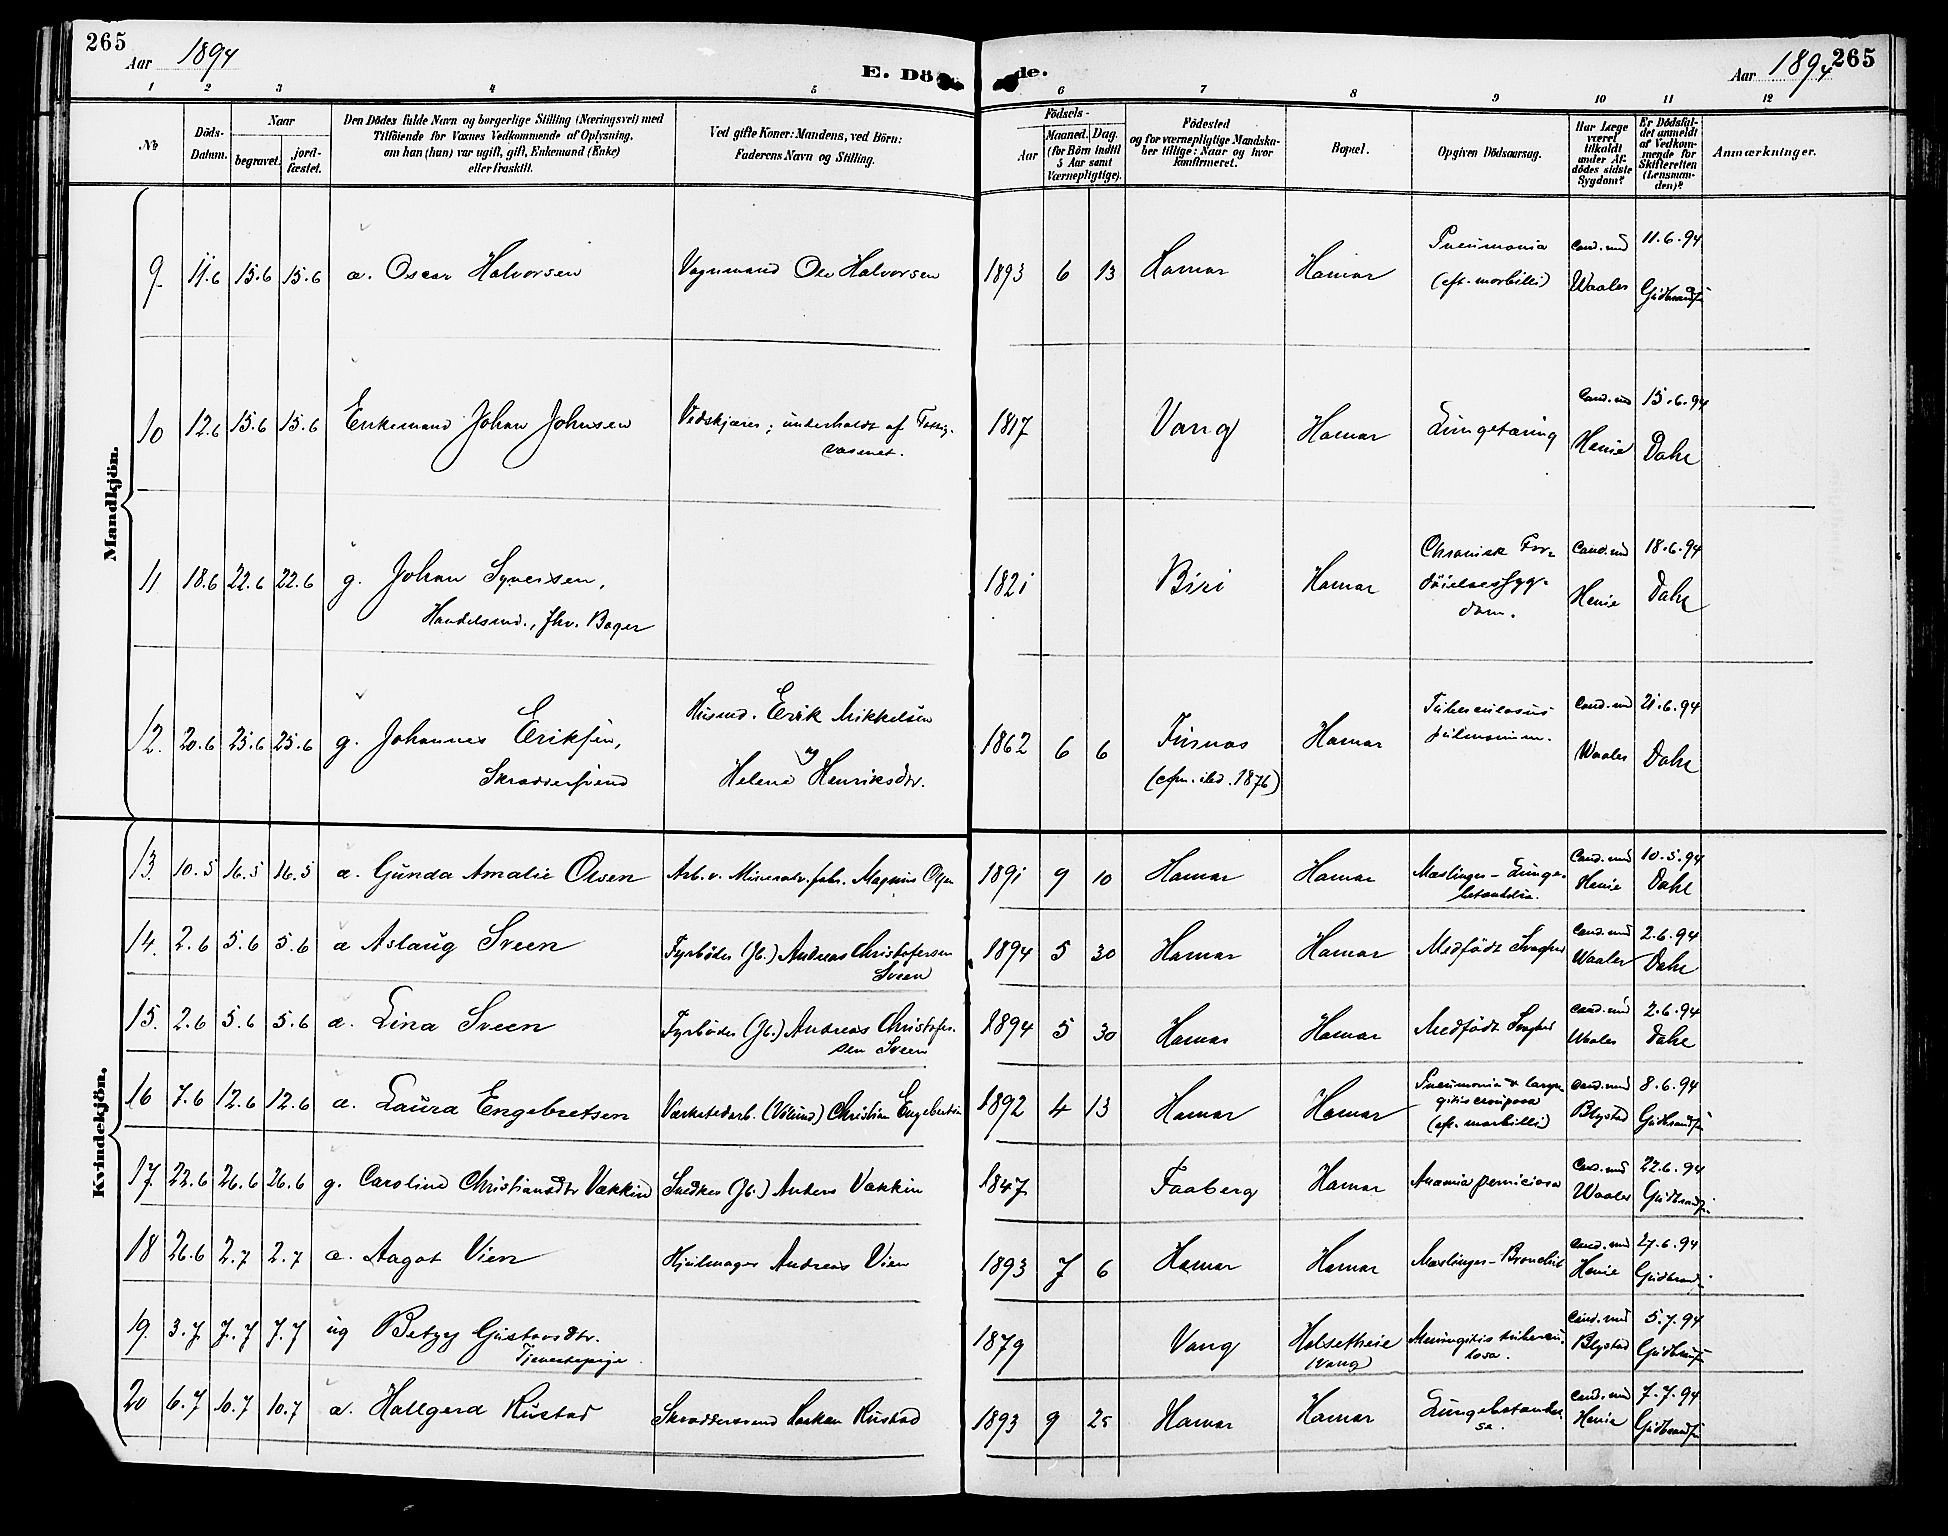 265
Aar 1894
E. Dö
de.
Aar 1894
265
1 2 3 4 5 6 7 8 9 10 11 12
No
Döds-
Datum.
Naar
begravet.
jord-
fæstet.
Den Dödes fulde Navn og borgerlige Stilling (Næringsvei) med
Tilföiende for Voxnes Vedkommende af Oplysning,
om han (hun) var ugift, gift, Enkemand (Enke)
eller fraskilt.
Ved gifte Koner: Mandens, ved Börn:
Faderens Navn og Stilling.
Födsels-
Aar
Maaned.
Dag.
(for Börn indtil
5 Aar samt
Værnepligtige).
Födested
og for værnepligtige Mandska-
ber tillige: Naar og hvor
konfirmeret.
Bopæl.
Opgiven Dödsaarsag.
Har Læge
været
tilkaldt
under Af-
dödes sidste
Sygdom?
Er Dödsfal-
det anmeldt
af Vedkom-
mende for
Skifteretten
(Lensman-
den)?
Anmærkninger.
Mandkjön.
9. 11.6 15.6 15.6 a. Oscar Halvorsen Vognmand Ole Halvorsen 1893 6 13 Hamar Hamar Pneumonia
(eft. morbilli) Cand. med
Waaler 11.6.94
Gudbrandsen
10 12.6 15.6 15.6 Enkemand Johan Johnsen Vedskjærer; underholdt af Fattig-
væsenet. 1817 Vang Hamar Lungetæring Cand. med
Henie 15.6.94
Dahl
11 18.6 22.6 22.6 g. Johan Syversen,
Handelsmd., fhv. Bager 1821 Biri Hamar Chronisk For-
döielsessyg-
dom. Cand. med
Henie 18.6.94
Dahl
12. 20.6 25.6 25.6 g. Johannes Eriksen,
Skræddersvend Husmd. Erik Mikkelsen
og
Helene Henriksdtr. 1862 6 6 Furnæs
(cfm. ibd. 1876) Hamar Tuberculosis
pulmonum. Cand. med
Waaler 21.6.94
Dahl
Kvindekjön.
13. 10.5 16.5 16.5 a. Gunda Amalie Olsen Arb. v. Mineralv.fabr. Magnus Olsen 1891 9 10 Hamar Hamar Mæslinger - Lunge-
betændelse. Cand. med
Henie 10.5.94
Dahl
14. 2.6 5.6 5.6 a Aslaug Sveen Fyrböder (Jb.) Andreas Christofersen
Sveen 1894 5 30 Hamar Hamar Medfödt Svaghed Cand. med
Waaler 2.6.94
Dahl
15. 2.6 5.6 5.6 a. Lina Sveen Fyrböder (Jb.) Andreas Christofer-
sen Sveen 1894 5 30 Hamar Hamar Medfödt Svaghed Cand. med
Waaler 2.6.94
Dahl
16 7.6 12.6 12.6 a. Laura Engebretsen Værkstedarb. (Völund) Christian Engebretsen 1892 4 13 Hamar Hamar Pneumonia & laryn-
gitis crouposa
(eft. morbilli) Cand. med
Blystad 8.6.94
Gudbrandsen
17. 22.6 26.6 26.6 g. Caroline Christiansdtr Vækkin Snedker (Jb.) Anders Vækkin 1847 Faaberg Hamar Anæmia perniciosa Cand. med
Waaler 22.6.94
Gudbrandsen
18 26.6 2.7 2.7 a. Aagot Vien Hjulmager Andreas Vien 1893 7 6 Hamar Hamar Mæslinger - Bronchit Cand. med
Henie 27.6.94
Gudbrandsen
19. 3.7 7.7 7.7 ug Betzy Gustavsdtr.
Tjenestepige. 1879 Vang Holsetheie
(Vang) Meningitis tubercu-
losa. Cand. med
Blystad 5.7.94
Gudbrandsen
20 6.7 10.7 10.7 a. Hallgerd Rustad Skræddersvend Rustad 1893 9 25 Hamar Hamar Lungebetændel-
se. Cand. med
Henie 7.7.94
Gudbrandsen